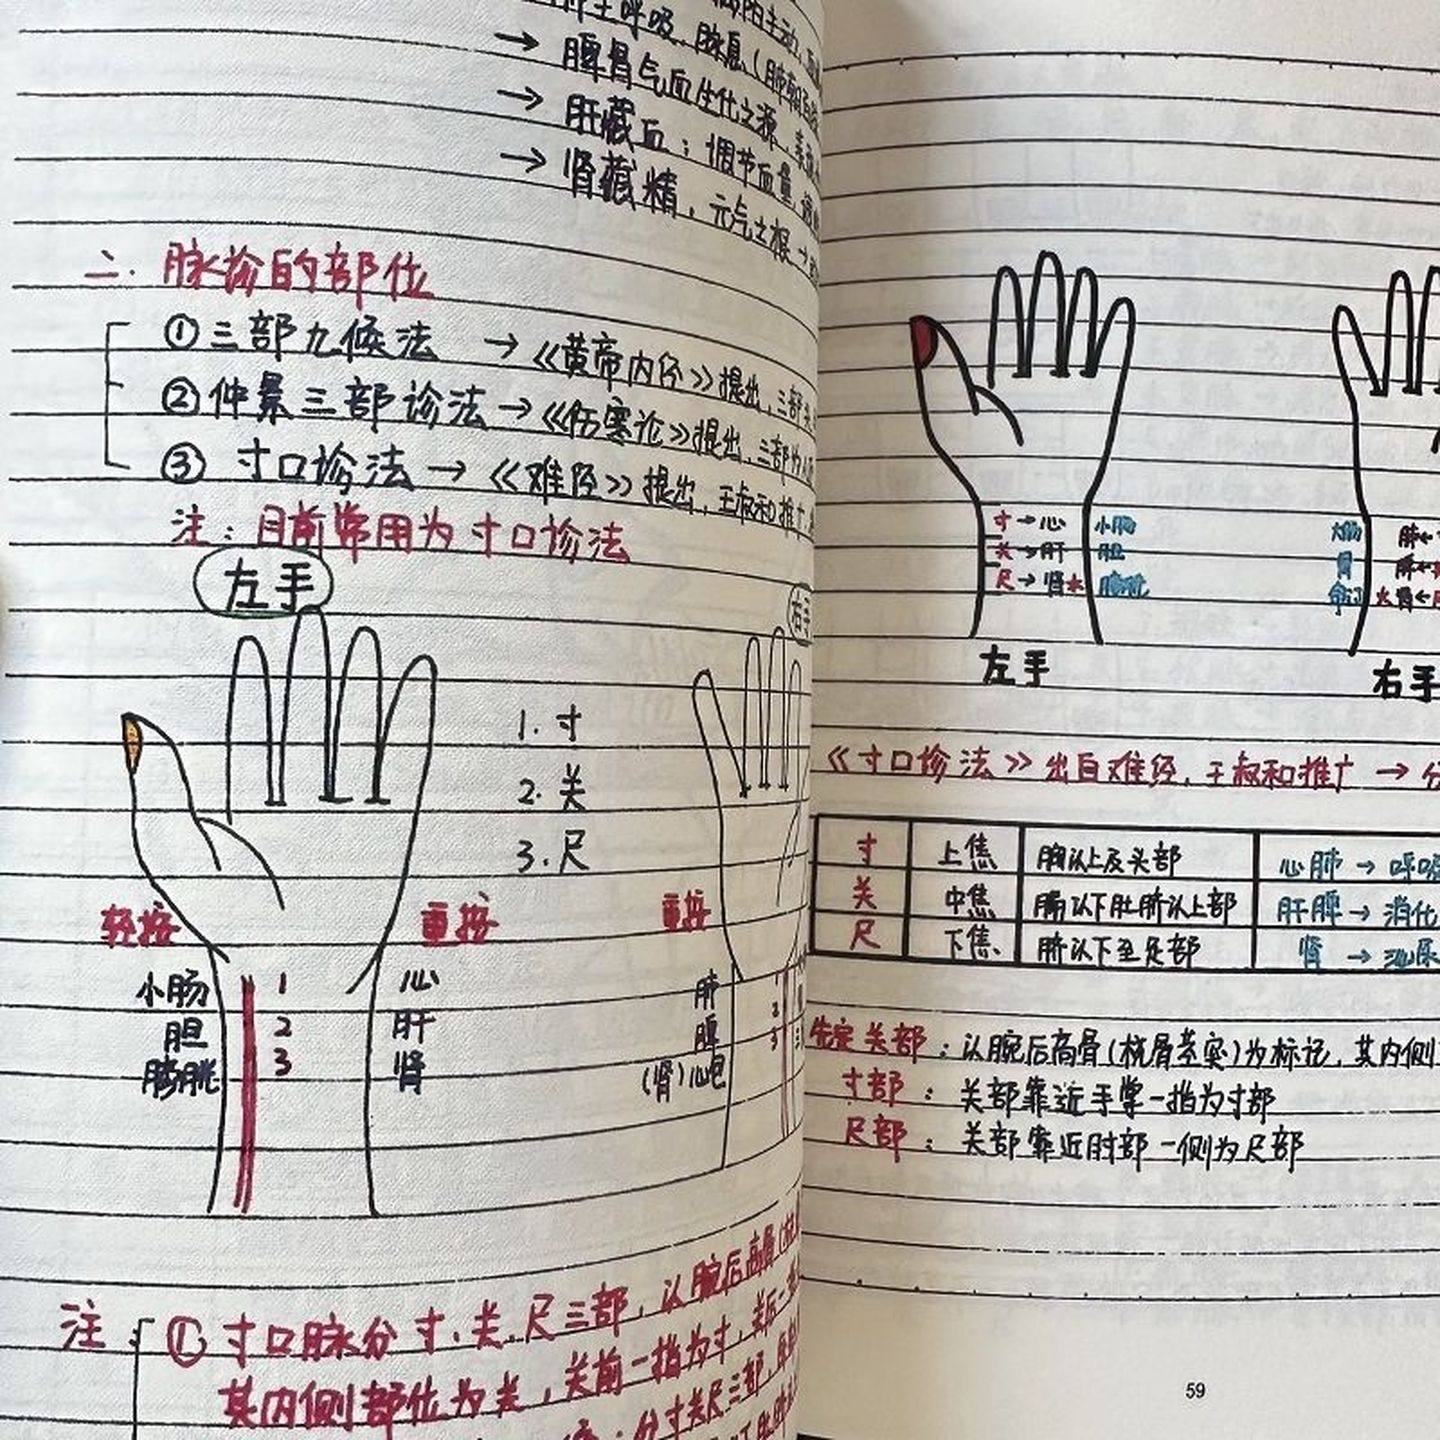 → 脾胃气血生化之源
→ 肝藏血；调节血量
→ 肾藏精，元气之根 →
二. 脉诊的部位
① 三部九候法 → 《黄帝内经》提出，三部
② 仲景三部诊法 → 《伤寒论》提出，三部为
③ 寸口诊法 → 《难经》提出，王叔和推广
注：目前常用为寸口诊法
左手
右手
1. 寸
2. 关
3. 尺
轻按 重按
小肠 1 心
胆 2 肝
膀胱 3 肾
重按
肺 1
脾 2
(肾)心包 3
注：① 寸口脉分寸、关、尺三部，以腕后高骨
其内侧部位为关，关前一指为寸，关后一
分寸关尺三部
寸→心 小肠
关→肝 胆
尺→肾水 膀胱
左手
大肠 肺←
胃 脾←
命门 火肾←
右手
《寸口诊法》出自难经，王叔和推广 →
寸 上焦 胸以上及头部 心肺 → 呼吸
关 中焦 膈以下肚脐以上部 肝脾 → 消化
尺 下焦 脐以下至足部 肾 → 泌尿
先定关部：以腕后高骨(桡骨茎突)为标记，其内侧
寸部：关部靠近手掌一指为寸部
尺部：关部靠近肘部一侧为尺部
59